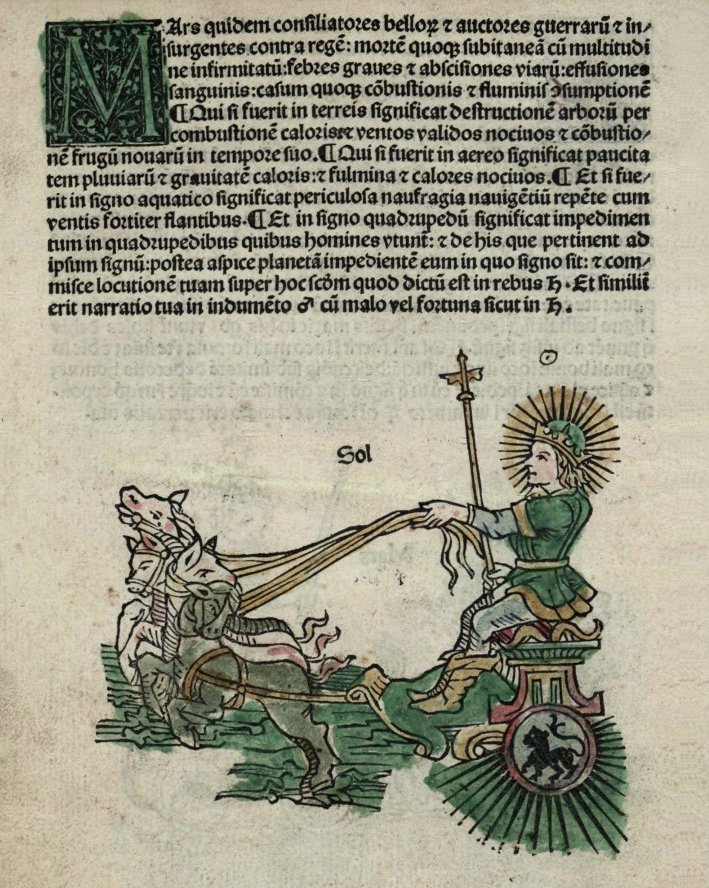 MArs quidem consiliatores belloꝝ ⁊ auctores guerrarū ⁊ in/
surgentes contra regē: mortē quoqꝫ subitaneā cū multitudi
ne infirmitatū:febres graues ⁊ abscisiones viarū:effusiones
sanguinis:casum quoqꝫ cōbustionis ⁊ fluminis ꝯsumptionē
¶Qui si fuerit in terreis significat destructionē arborū per
combustionē caloris:⁊ ventos validos nociuos ⁊ cōbustio/
nē frugū nouarū in tempore suo.¶Qui si fuerit in aereo significat paucita
tem pluuiarū ⁊ grauitatē caloris:⁊ fulmina ⁊ calores nociuos.¶ Et si fue/
rit in signo aquatico significat periculosa naufragia nauigētiū repēte cum
ventis fortiter flantibus.¶Et in signo quadrupedū significat impedimen
tum in quadrupedibus quibus homines vtunt: ⁊ de his que pertinent ad
ipsum signū:postea aspice planetā impedientē eum in quo signo sit: ⁊ com/
misce locutionē tuam super hoc scd̄m quod dictū est in rebus ♄. Et similiē
erit narratio tua in indumēto ♂ cū malo vel fortuna sicut in ♄.
☉
Sol